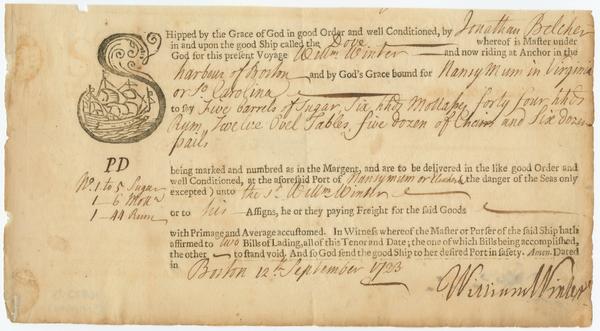 SHipped by the Grace of God in good Order and well Conditioned, by Jonathan Belcher
in and upon the good Ship called the Dove whereof is Master under
God for this present Voyage Willm Winter and now riding at Anchor in the
harbour of Boston and by God's Grace bound for Nansymum in Virginia
or So. Carolina
to say Five barrels of Sugar, Six hhds Mollases, forty four hhds
Rum, Twelve Ovel Tables, five dozen of Chairs and Six dozen
pails
PD
being marked and numbred as in the Margent, and are to be delivered in the like good Order and
No. 1 to 5 Sugar
well Conditioned, at the aforesaid Port of Nansymum or the danger of the Seas only
1-6 Molls
excepted) unto the sd. Willm Winter
1-44 Rum
or to his Assigns, he or they paying Freight for the said Goods
with Primage and Average accustomed. In Witness whereof the Master or Purser of the said Ship hath
affirmed to two Bills of Lading, all of this Tenor and Date; the one of which Bills being accomplished,
the other to stand void. And so God send the good Ship to her desired Port in safety. Amen. Dated
in Boston 12th September 1723
William Winter